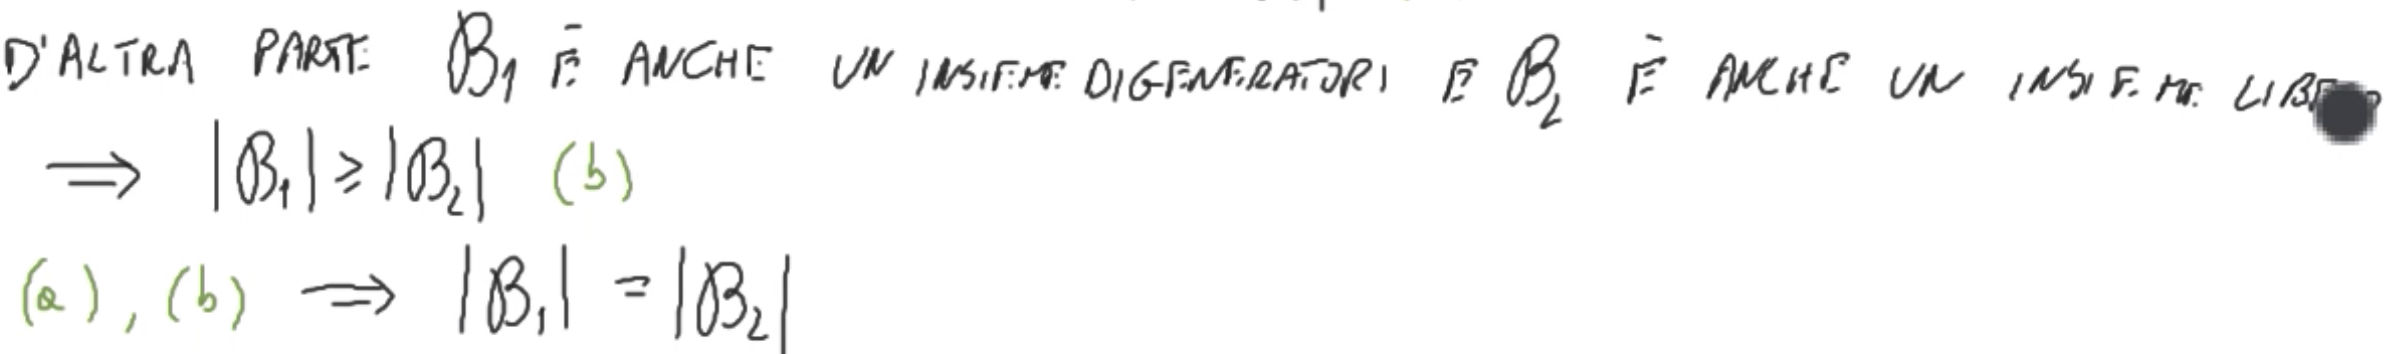 D'ALTRA PARTE B₁ È ANCHE UN INSIEME DI GENERATORI E B₂ È ANCHE UN INSIEME LIBERO
⟹ |B₁| ≥ |B₂| (b)
(a), (b) ⟹ |B₁| = |B₂|